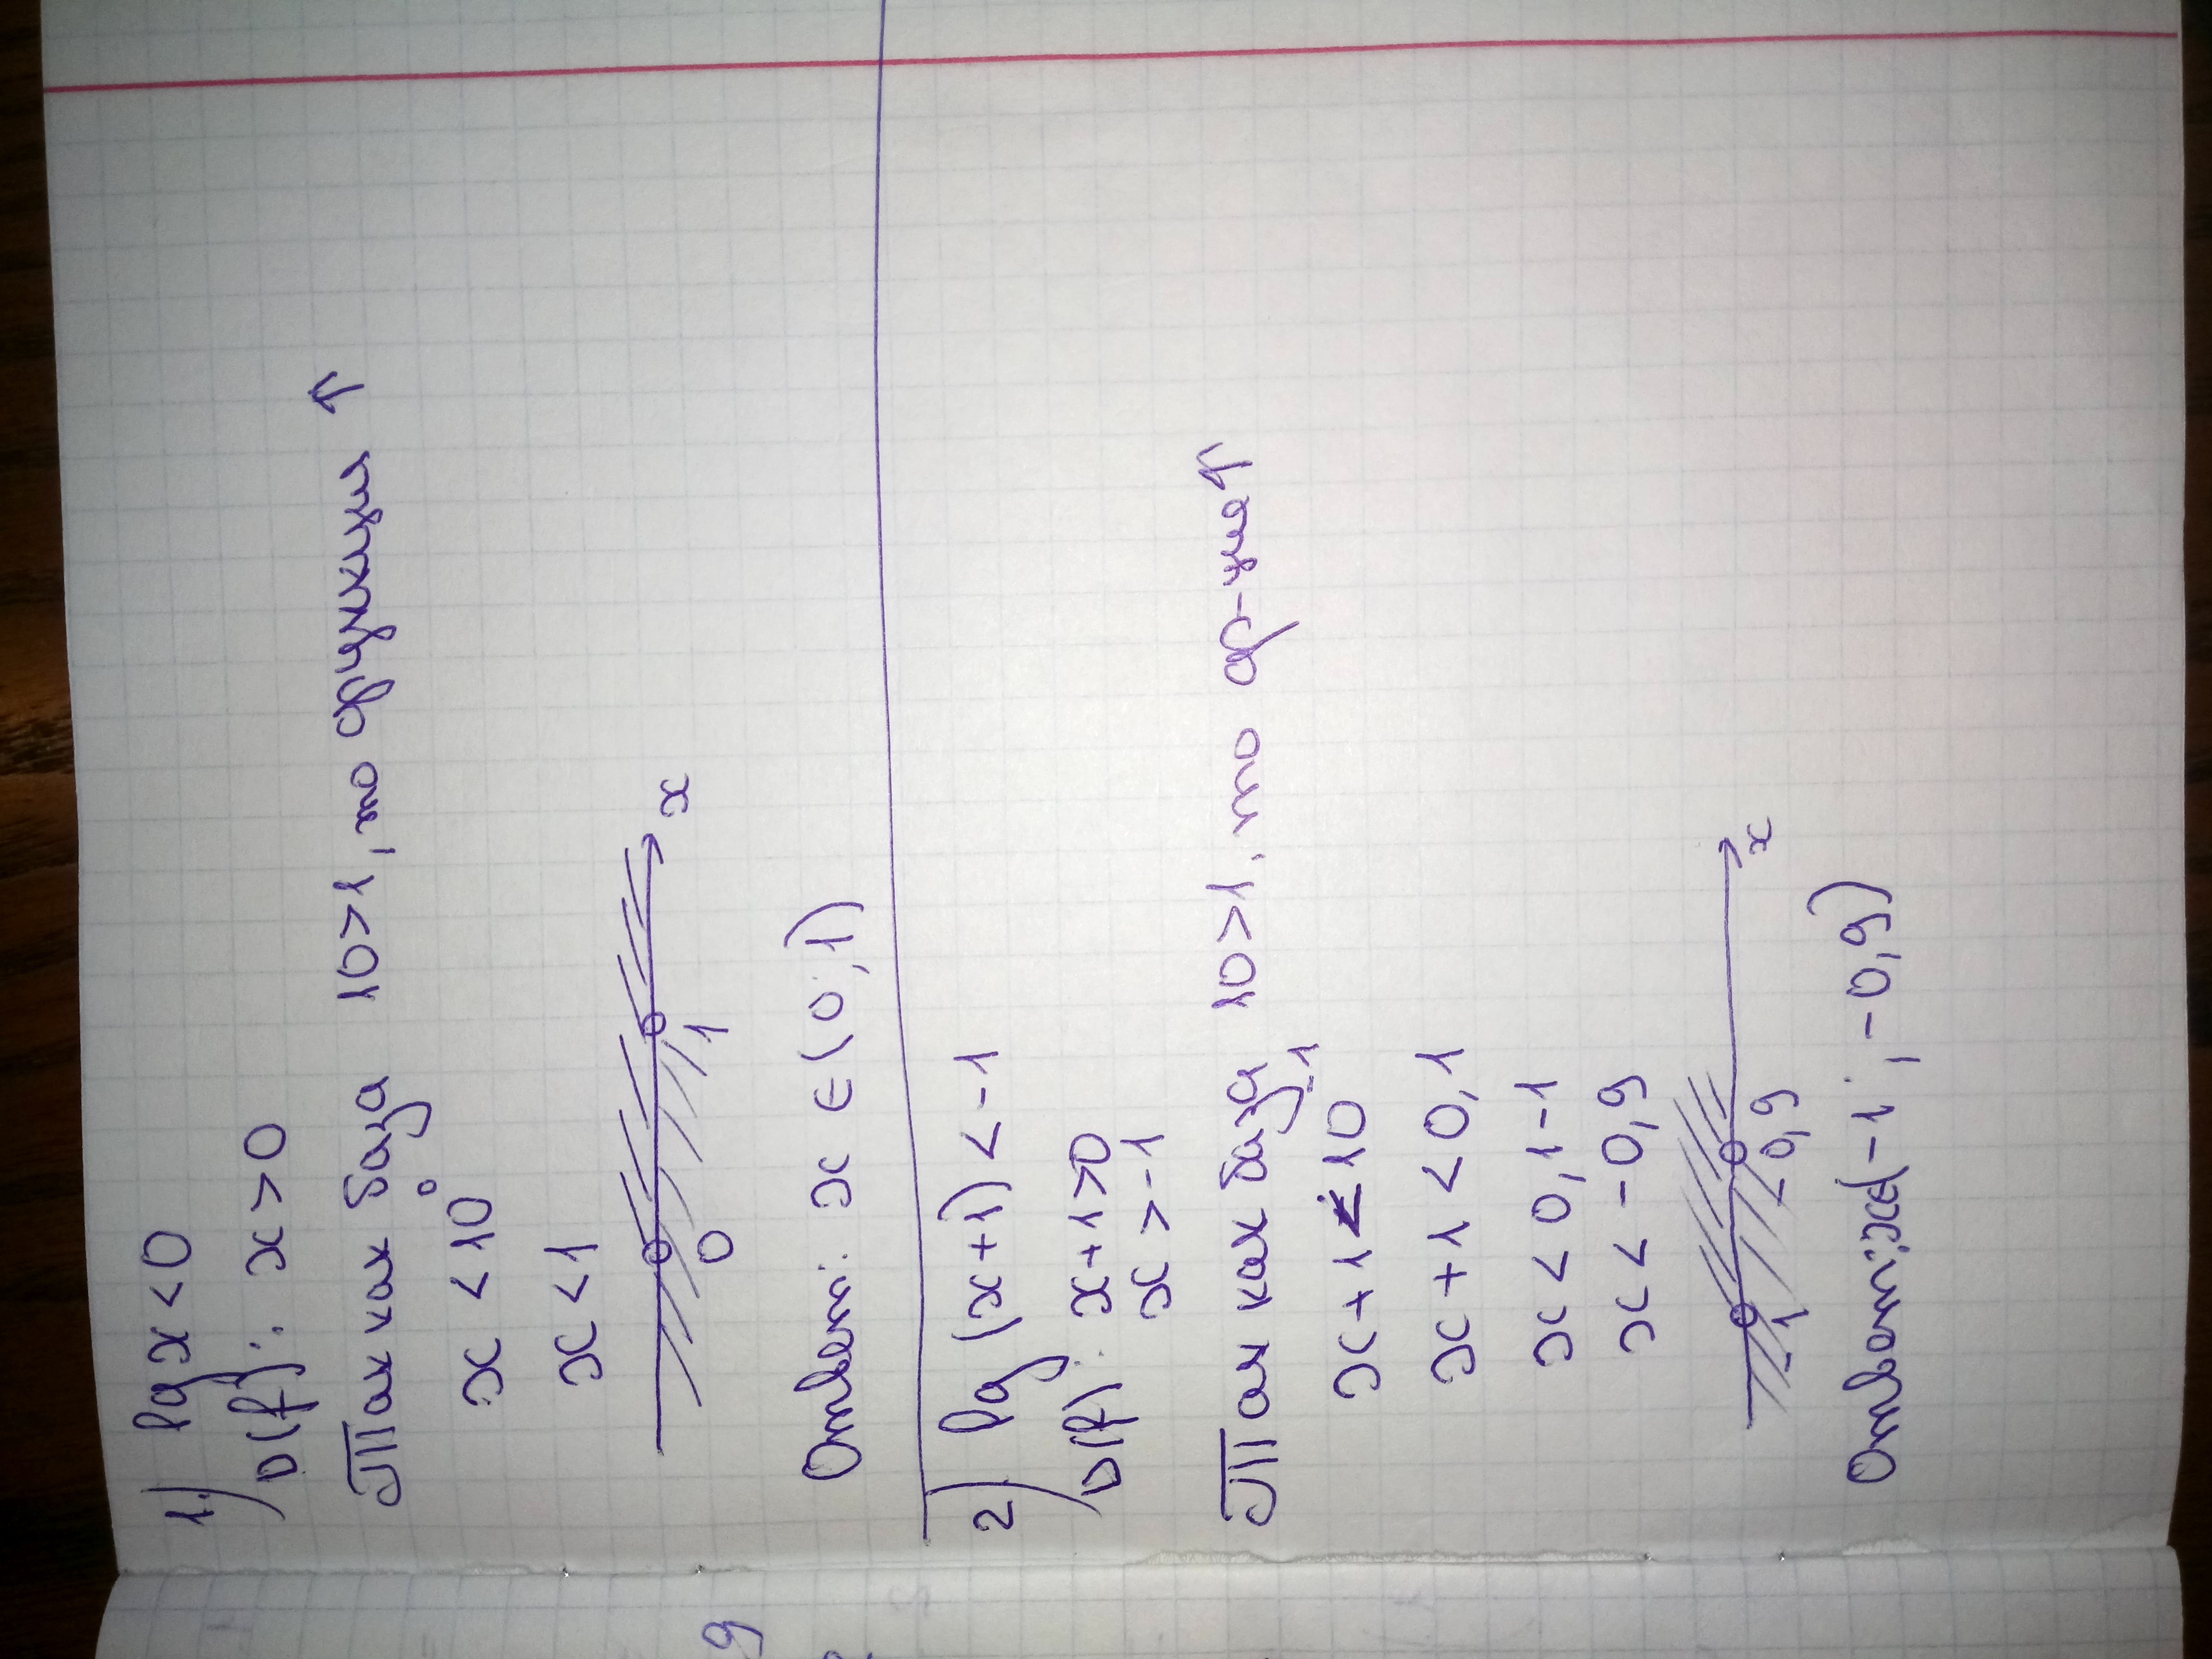 1) lg x < 0
D(f): x > 0
Так как база 10>1, то функция ↑
x < 10⁰
x < 1
x
0 1
Ответ: x ∈ (0; 1)
2) lg (x+1) < -1
D(f): x+1>0
x > -1
Так как база 10>1, то ф-ция ↑
x+1 < 10⁻¹
x+1 < 0,1
x < 0,1-1
x < -0,9
x
-1 -0,9
Ответ: x∈(-1; -0,9)
9